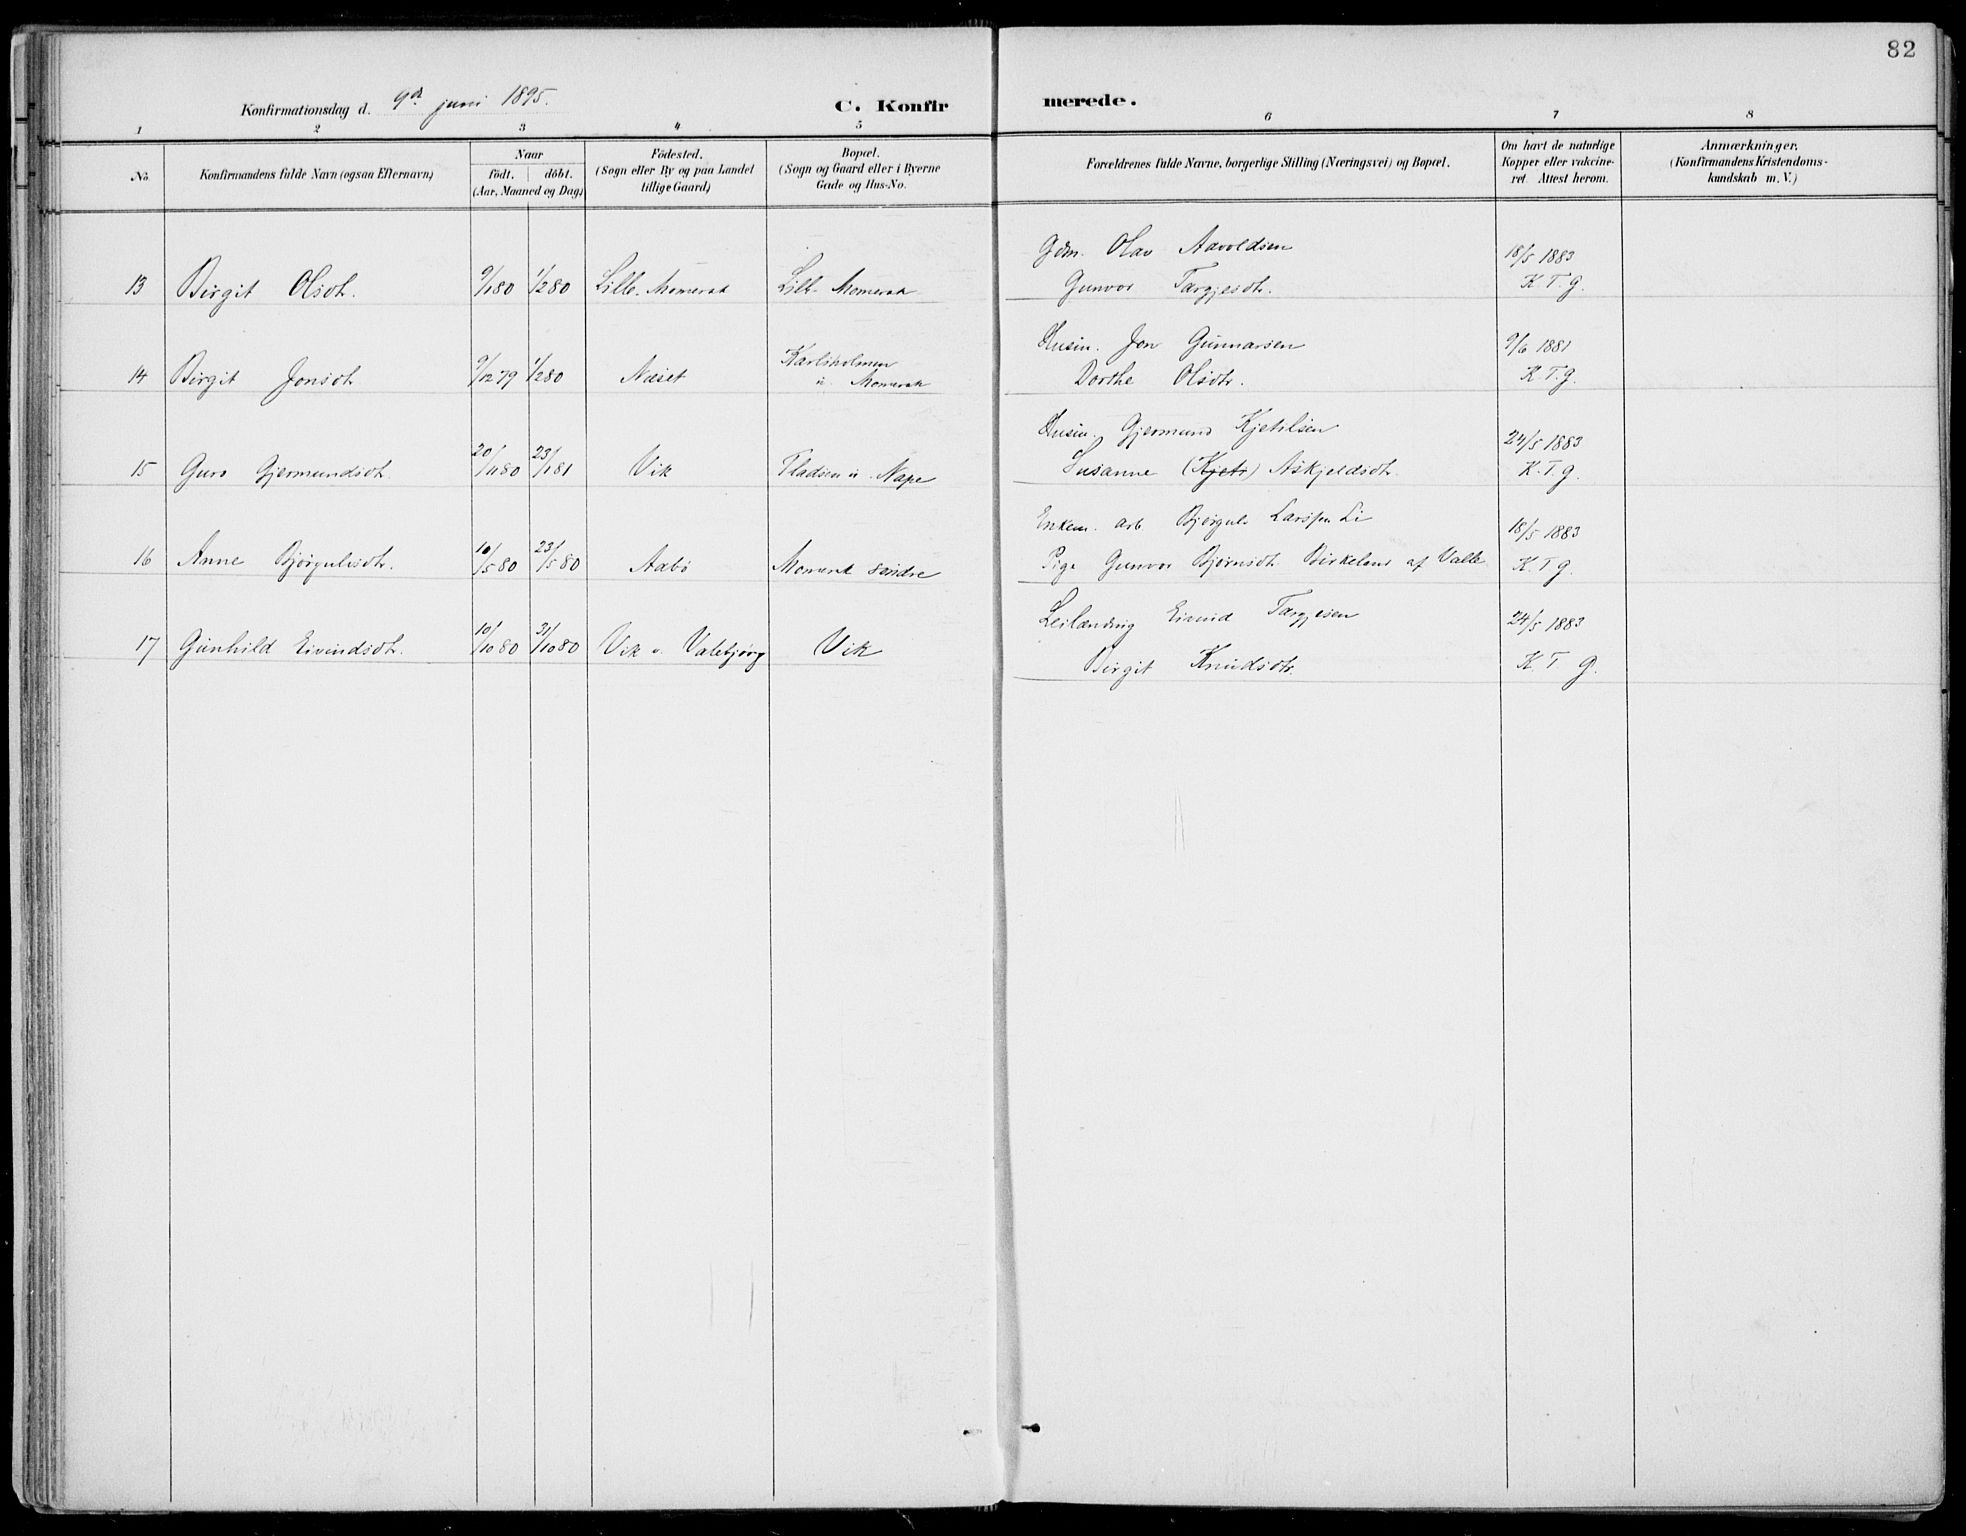 82
Konfirmationsdag d. 9de juni 1895.
C. Konfirmerede.
1 2 3 4 5 6 7 8
No.
Konfirmandens fulde Navn (ogsaa Efternavn)
Naar
födt. döbt.
(Aar, Maaned og Dag)
Födested.
(Sogn eller By og paa Landet
tillige Gaard)
Bopæl.
(Sogn og Gaard eller i Byerne
Gade og Hus-No.
Forældrenes fulde Navne, borgerlige Stilling (Næringsvei) og Bopæl.
Om havt de naturlige
Kopper eller vakcine-
ret. Attest herom.
Anmærkninger.
(Konfirmandens Kristendoms-
kundskab m. V.)
Gdm. Olav Aavoldsen 18/5 1883
13 Birgit Olsdt. 9/1 80 1/2 80 Lille-Momerak Lill- Momerak Gunvor Targjesdtr. K. T. G.
Husm. Jon Gunnarsen 9/6 1881
Karlsholmen
14 Birgit Jonsdt 9/12 79 1/2 80 Næset u. Momerak Dorthe Olsdtr. K. T. G.
Husm. Gjermund Kjetilsen 24/5 1883
15 Guro Gjermundsdt. 20/11 80 23/1 81 Vik Pladsen u. Nape Susanne (Kjetr) Askjeldsdtr. K. T. G
Enkem. arb. Bjørgulv Larssen Li 18/5 1883
16 Anne Bjørgulvsdtr. 10/5 80 23/5 80 Aabø Momerak søndre Pige Gunvor Bjørnsdt. Birkeland af Valle K. T. G.
Leilænding Eivind Targjesen 24/5 1883
17 Gunhild Eivindsdtr. 10/10 80 31/10 80 Vik v. Valebjørg Vik Birgit Knudsdtr. K. T. G.